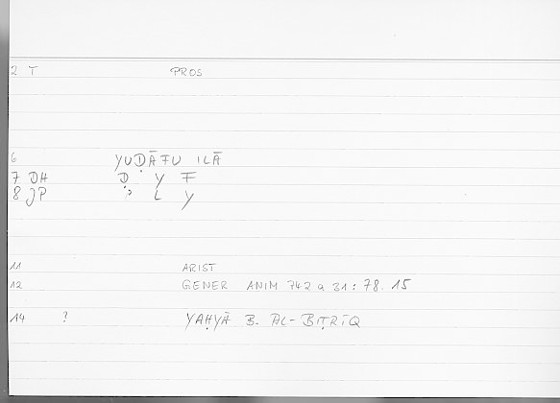 2 T PROS
6 YUḌĀFU ILĀ
7 DH Ḍ Y F
8 JP ʾ L Y
11 ARIST
12 GENER ANIM 742 a 31: 78.15
14 ? YAḤYĀ B. AL-BIṬRĪQ